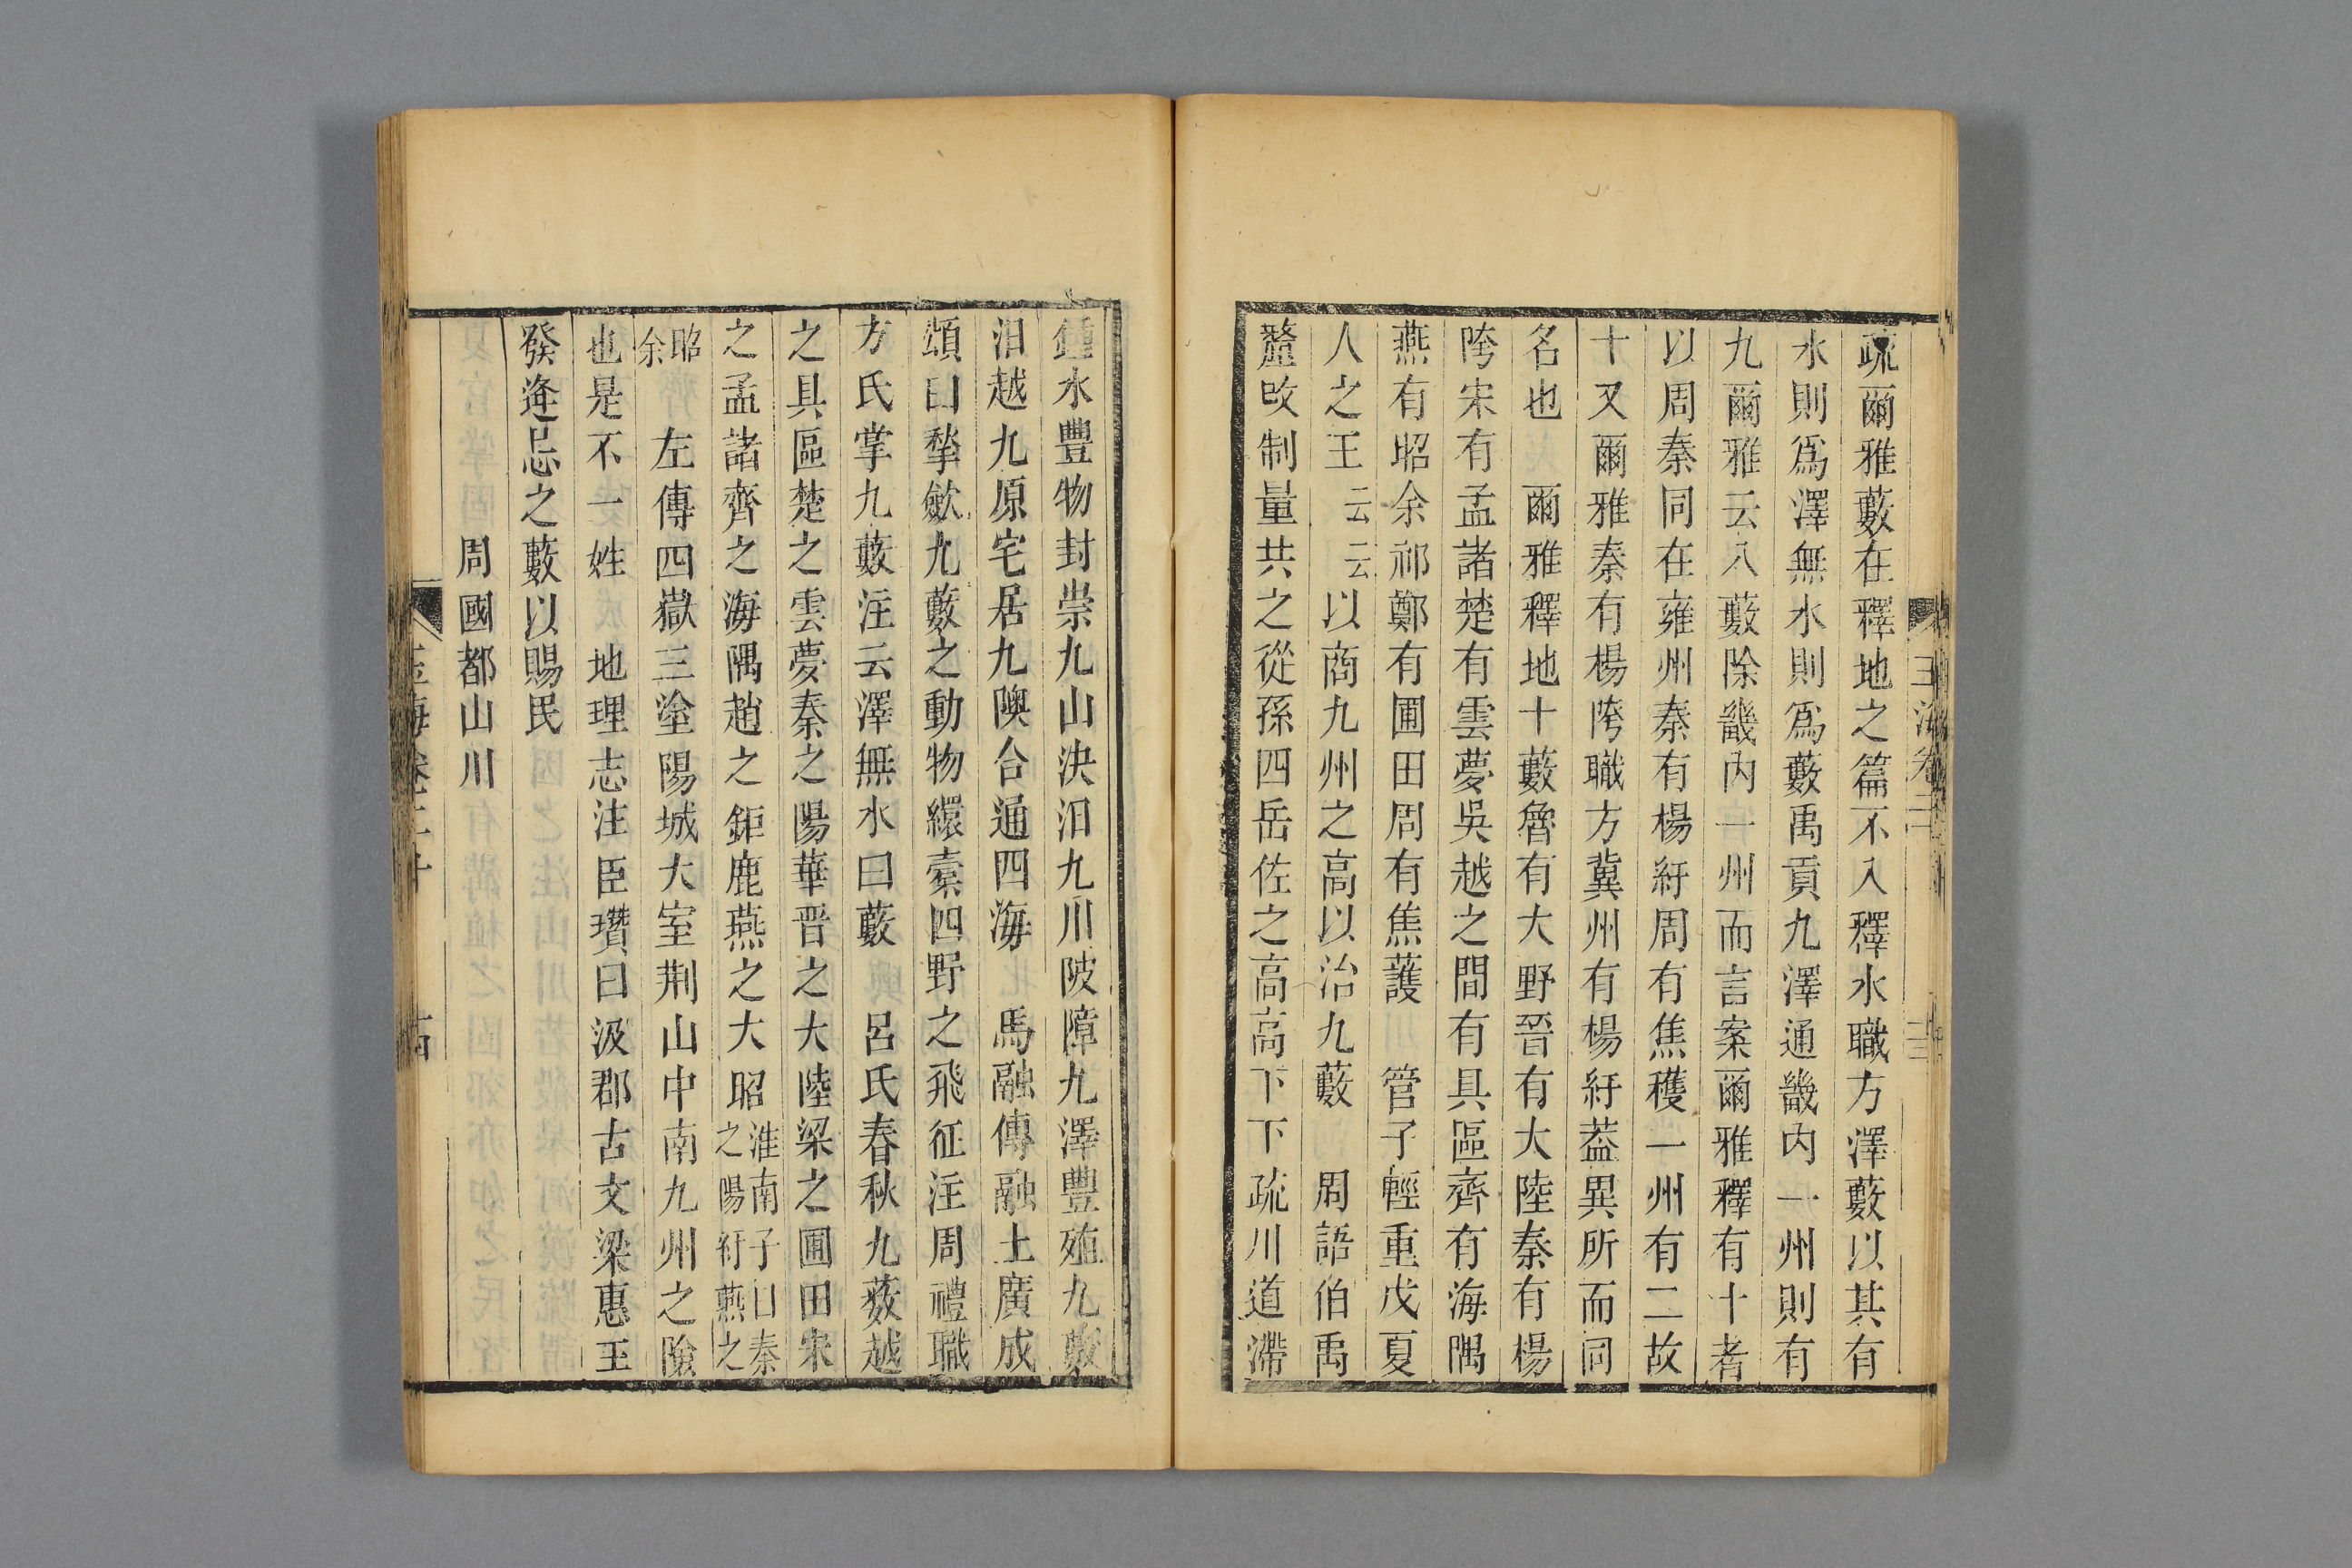 疏爾雅藪在釋地之篇不入釋水職方澤藪以其有
水則爲澤無水則爲藪禹貢九澤通畿內一州則有
九爾雅云八藪除畿內一州而言案爾雅釋有十者
以周秦同在雍州秦有楊紆周有焦穫一州有二故
十又爾雅秦有楊陓職方冀州有楊紆葢異所而同
名也 爾雅釋地十藪魯有大野晉有大陸秦有楊
陓宋有孟諸楚有雲夢吳越之間有具區齊有海隅
燕有昭余祁鄭有圃田周有焦護 管子輕重戊夏
人之王云云以商九州之高以治九藪 周語伯禹
釐改制量共之從孫四岳佐之高高下下疏川道滯
鍾水豐物封崇九山決汨九川陂障九澤豐殖九藪
汨越九原宅居九隩合通四海 馬融傳融上廣成
頌曰揫斂九藪之動物繯橐四野之飛征注周禮職
方氏掌九藪注云澤無水曰藪 呂氏春秋九薮越
之具區楚之雲夢秦之陽華晋之大陸梁之圃田宋
之孟諸齊之海隅趙之鉅鹿燕之大昭淮南子曰秦之陽紆燕之
昭余 左傳四嶽三塗陽城大室荆山中南九州之險
也是不一姓 地理志注臣瓚曰汲郡古文梁惠王
發逄忌之藪以賜民
周國都山川